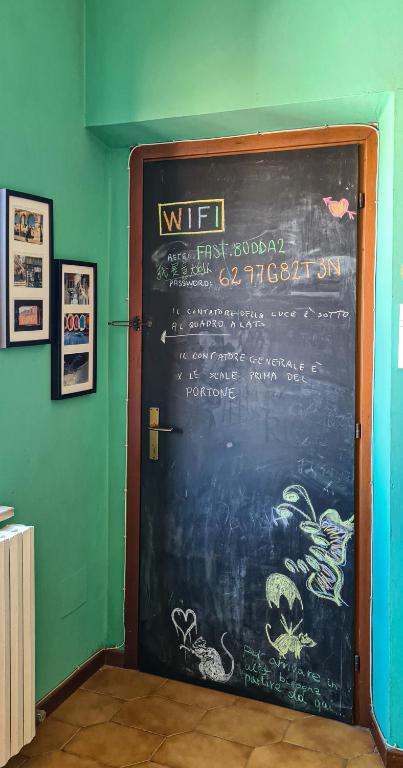 WIFI
RETE: FAST.80DDA2
我爱意大利
PASSWORD: 6297G82T3N
IL CONTATORE DELLA LUCE È SOTTO
AL QUADRO A LATO
IL CONTATORE GENERALE È
X LE SCALE PRIMA DEL
PORTONE
Per arrivare in